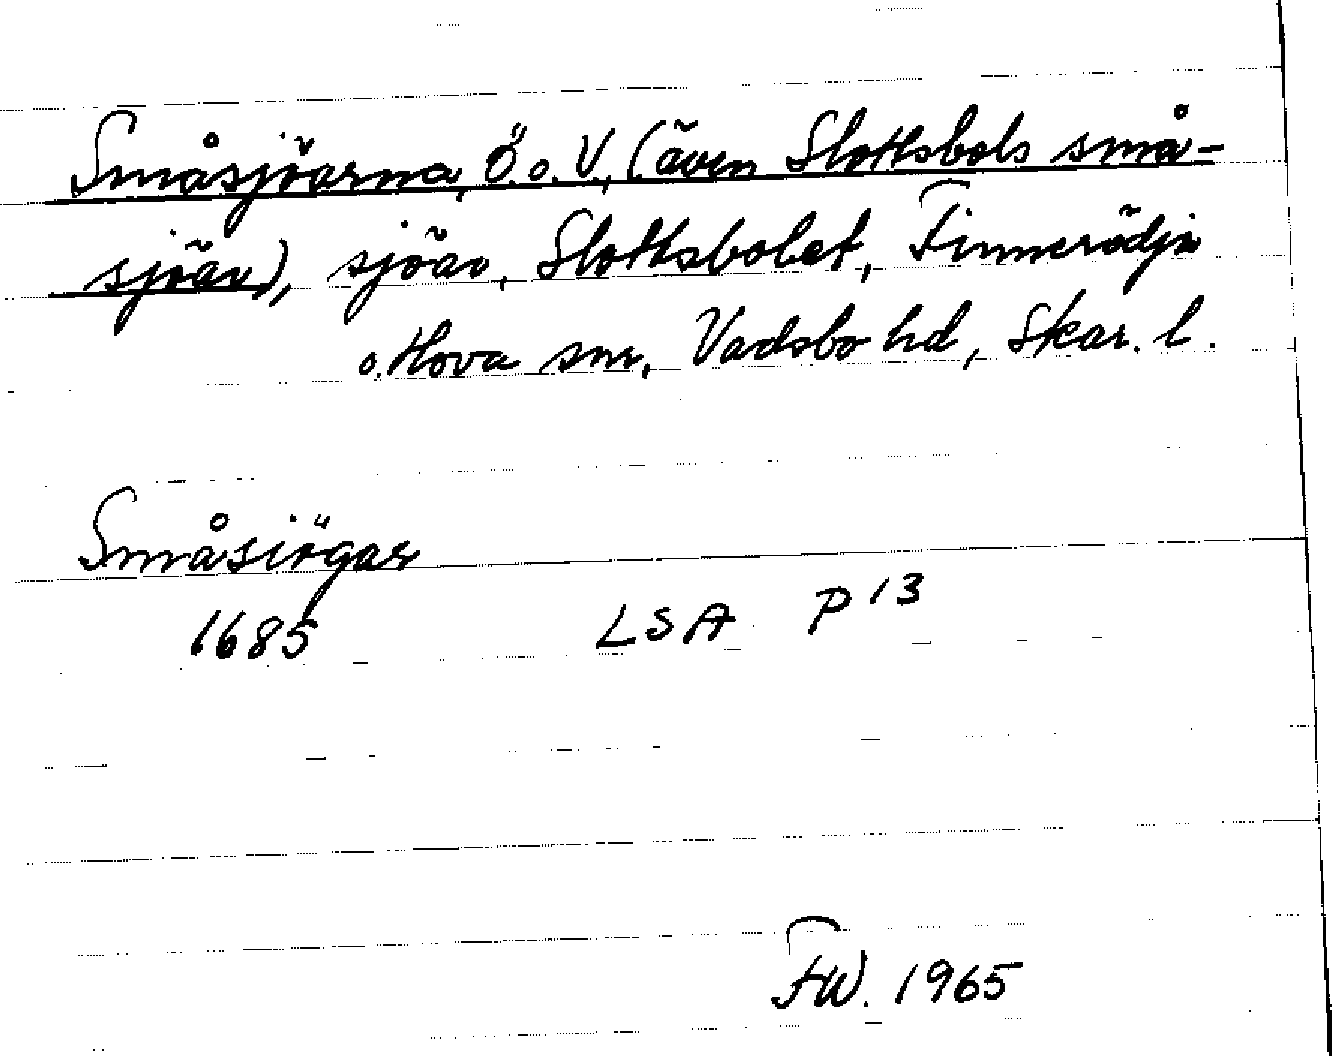 Småsjöarna, Ö. o. V., (även Slottsbols små-
sjöar), sjöar, Slottsbolet, Finnerödja
o. Hova snr, Vadsbo hd, Skar. l.
Småsiögar
1685 LSA P 13
FW. 1965